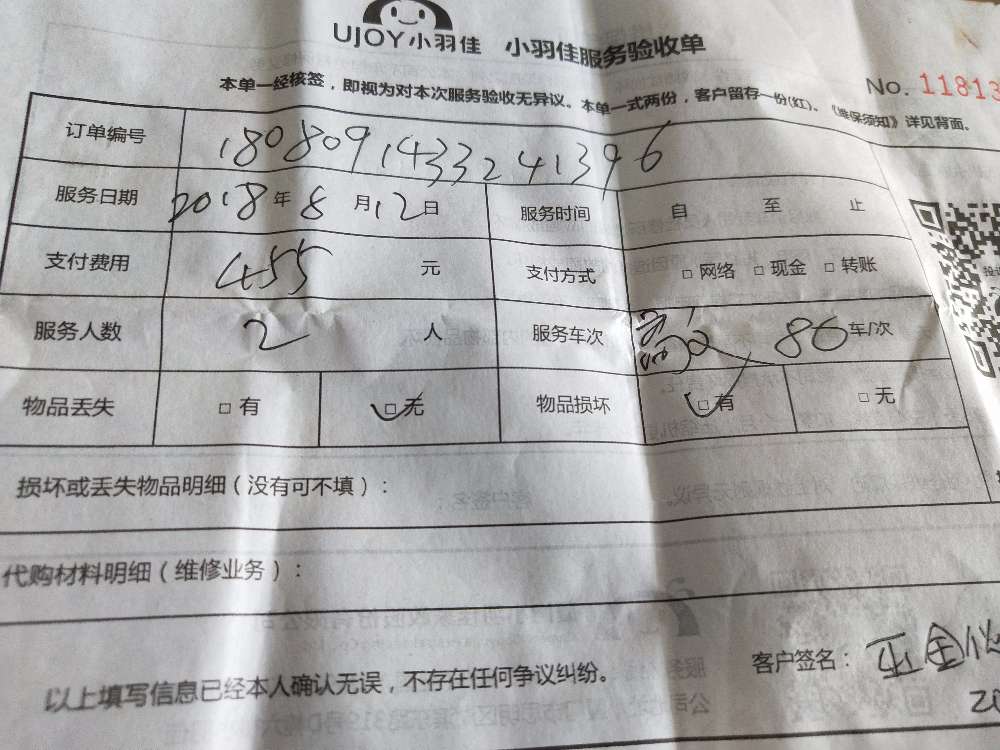 UJOY小羽佳 小羽佳服务验收单
No. 11813
本单一经核签，即视为对本次服务验收无异议。本单一式两份，客户留存一份(红)。《维保须知》详见背面。
订单编号 18080914333241396
服务日期 2018年8月12日 服务时间 自 至 止
支付费用 455 元 支付方式 □网络 □现金 □转账
服务人数 2 人 服务车次 80 车/次
物品丢失 □有 □无 物品损坏 □有 □无
损坏或丢失物品明细（没有可不填）：
代购材料明细（维修业务）：
以上填写信息已经本人确认无误，不存在任何争议纠纷。
客户签名：
20